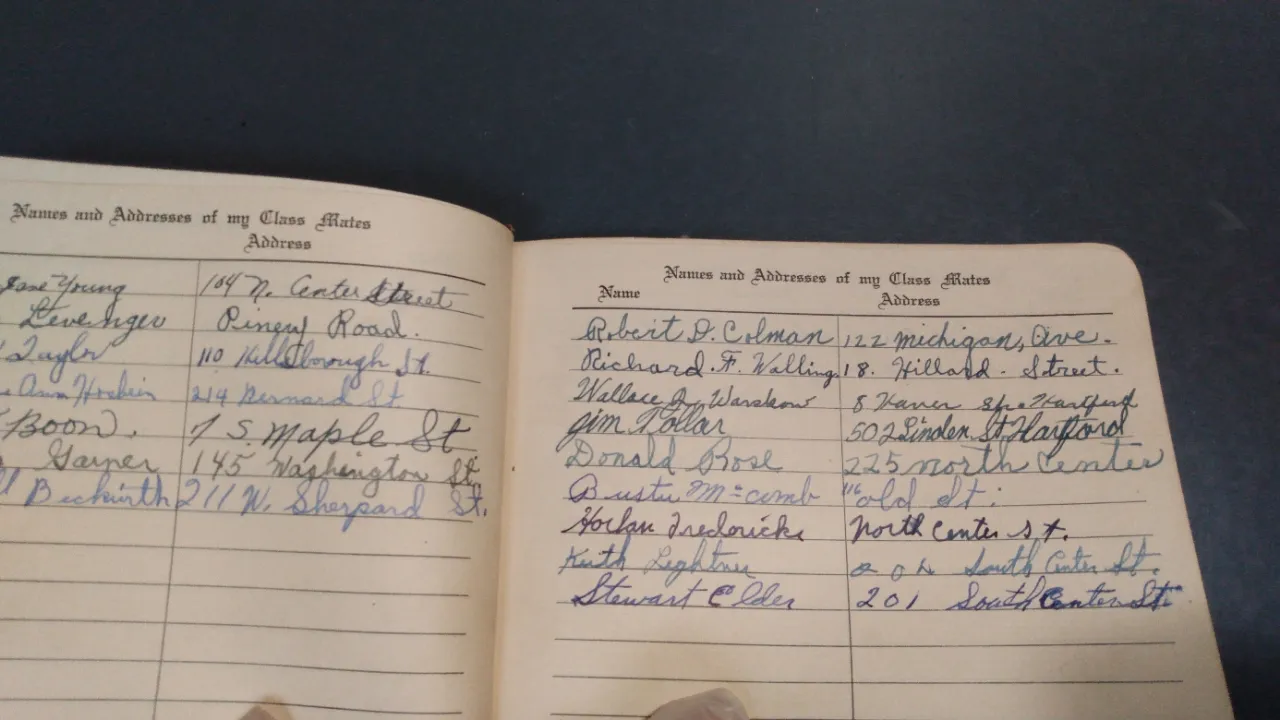 Names and Addresses of my Class Mates
Address
Jane Young 104 N. Center Street
Levenger Piney Road.
Taylor 110 Hillsborough St.
Ann 214 Bernard St
Boon. 7 S. Maple St
Garner 145 Washington St.
Beckwith 211 W. Sheppard St.
Names and Addresses of my Class Mates
Name Address
Robert D. Colman 122 Michigan, Ave.
Richard. F. Walling 18. Hillard. Street.
Wallace Warskow 8 Hartford
Jim 502 Linden St Hartford
Donald Rose 225 North Center
116 old St.
Harlan Fredericks North Center St.
Keith Lightner 202 South Center St.
Stewart Elder 201 South Center St.